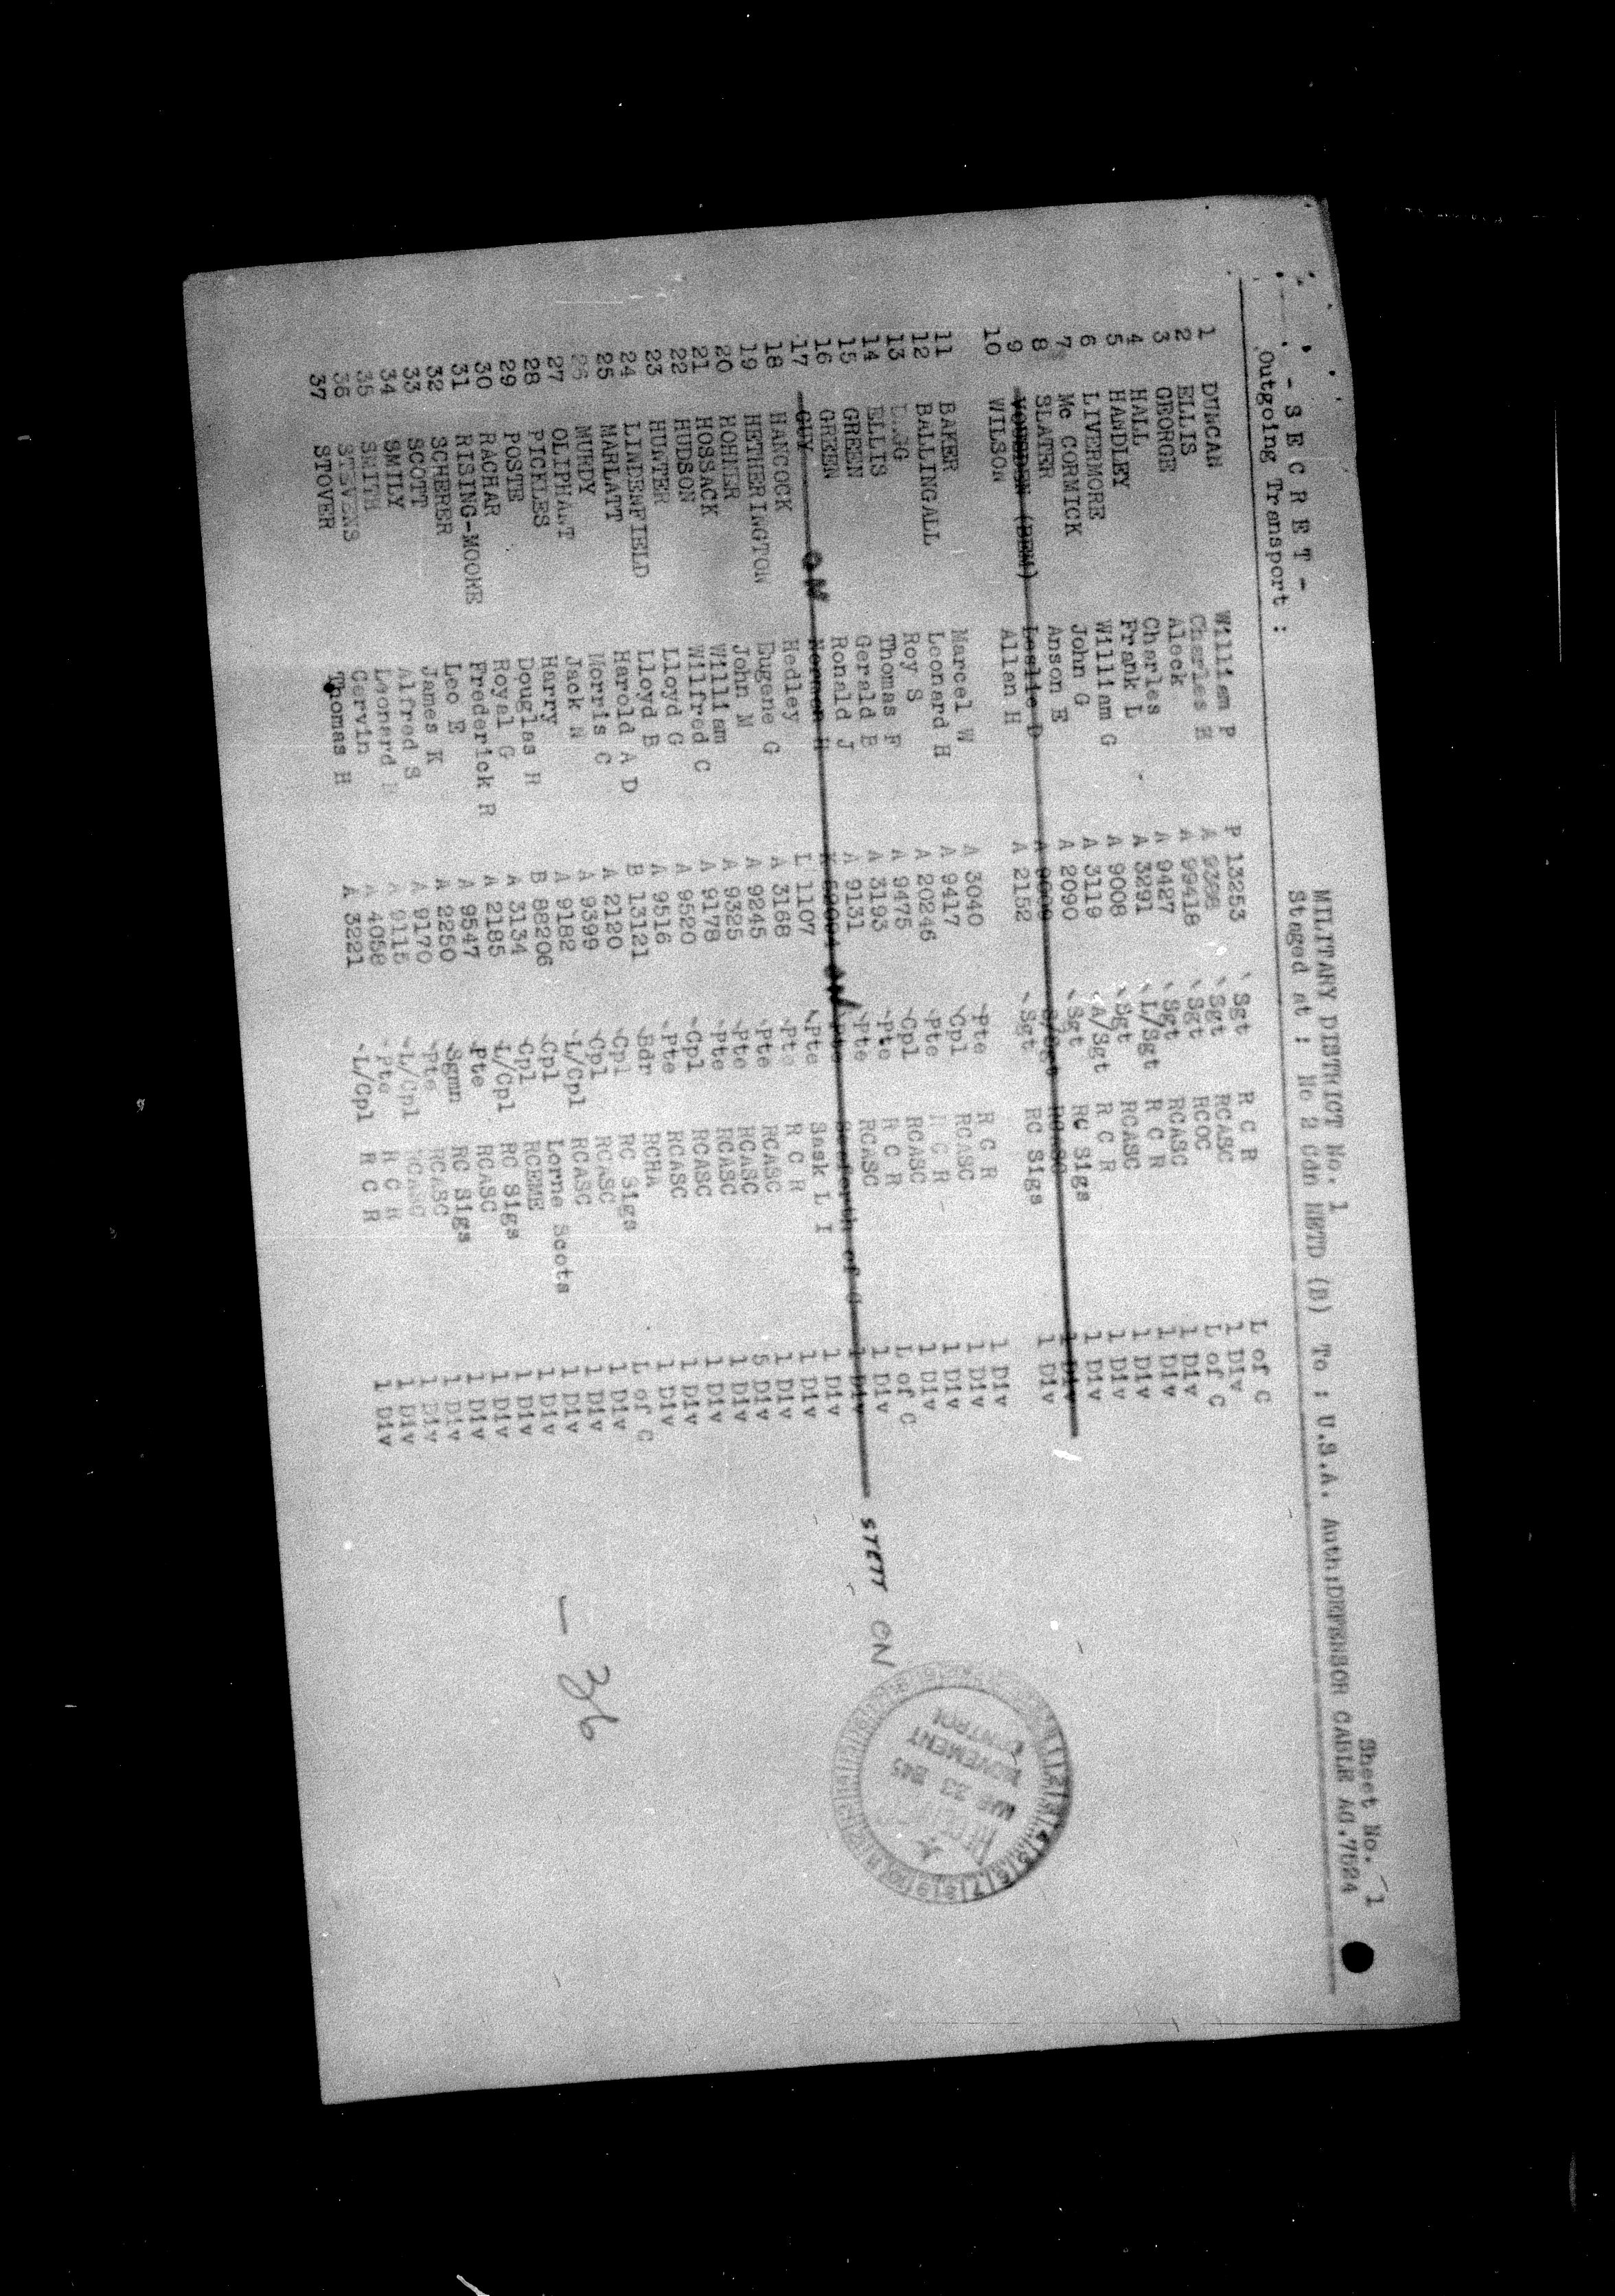 Sheet No. 1
- S E C R E T - MILITARY DISTRICT No. 1
Outgoing Transport : Staged at : No 2 Cdn NETD (B) To : U.S.A. Auth:DEFENSOR CABLE AG.7524
1 DUNCAN William P P 13253 Sgt R C R L of C
2 ELLIS Charles E A Sgt RCASC 1 Div
3 GEORGE Aleck A 99418 Sgt RCOC L of C
4 HALL Charles A 9427 Sgt RCASC 1 Div
5 HANDLEY Frank L A 3291 L/Sgt R C R 1 Div
6 LIVERMORE William G A 9008 Sgt RCASC 1 Div
7 Mc CORMICK John G A 3119 A/Sgt R C R 1 Div
8 SLATER Anson E A 2090 Sgt RC Sigs 1 Div
9 (BEM) Leslie D A 9609 S/Sgt RCASC 1 Div
10 WILSON Allan H A 2152 Sgt RC Sigs 1 Div
11 BAKER Marcel W A 3040 Pte R C R 1 Div
12 BALLINGALL Leonard H A 9417 Cpl RCASC 1 Div
13 Roy S A 20246 Pte R C R 1 Div
14 ELLIS Thomas F A 9475 Cpl RCASC 1 Div
15 GREEN Gerald E A 3193 Pte R C R L of C
16 GREEN Ronald J A 9131 Pte RCASC 1 Div
17 GUY ON Norman H K ON Pte Seaforth of C 1 Div STETT ON
18 HANCOCK Hedley L 1107 Pte Sask L I 1 Div
19 HETHERINGTON Eugene G A 3168 Pte R C R 1 Div
20 HOHNER John M A 9245 Pte RCASC 1 Div
21 HOSSACK William A 9325 Pte RCASC 5 Div
22 HUDSON Wilfred C A 9178 Pte RCASC 1 Div
23 HUNTER Lloyd G A 9520 Cpl RCASC 1 Div
24 LINDENFIELD Lloyd B A 9516 Pte RCASC 1 Div
25 MARLATT Harold A D B 13121 Bdr RCHA 1 Div
26 MUNDY Morris C A 2120 Cpl RC Sigs L of C
27 OLIPHANT Jack N A 9399 Cpl RCASC 1 Div
28 PICKLES Harry A 9182 L/Cpl RCASC 1 Div
29 POSTE Douglas H B 88206 Cpl Lorne Scots 1 Div
30 RACHAR Royal G A 3134 Cpl RCEME 1 Div
31 RISING-MOORE Frederick R A 2185 L/Cpl RC Sigs 1 Div
32 SCHERER Leo E A 9547 Pte RCASC 1 Div
33 SCOTT James K A 2250 Sgmn RC Sigs 1 Div
34 SMILY Alfred S A 9170 Pte RCASC 1 Div
35 SMITH Leonard A 9115 L/Cpl RCASC 1 Div
36 STEVENS Gervin A 4058 Pte R C R 1 Div
37 STOVER Thomas H A 3221 L/Cpl R C R 1 Div
- 36
MOVEMENT
CONTROL